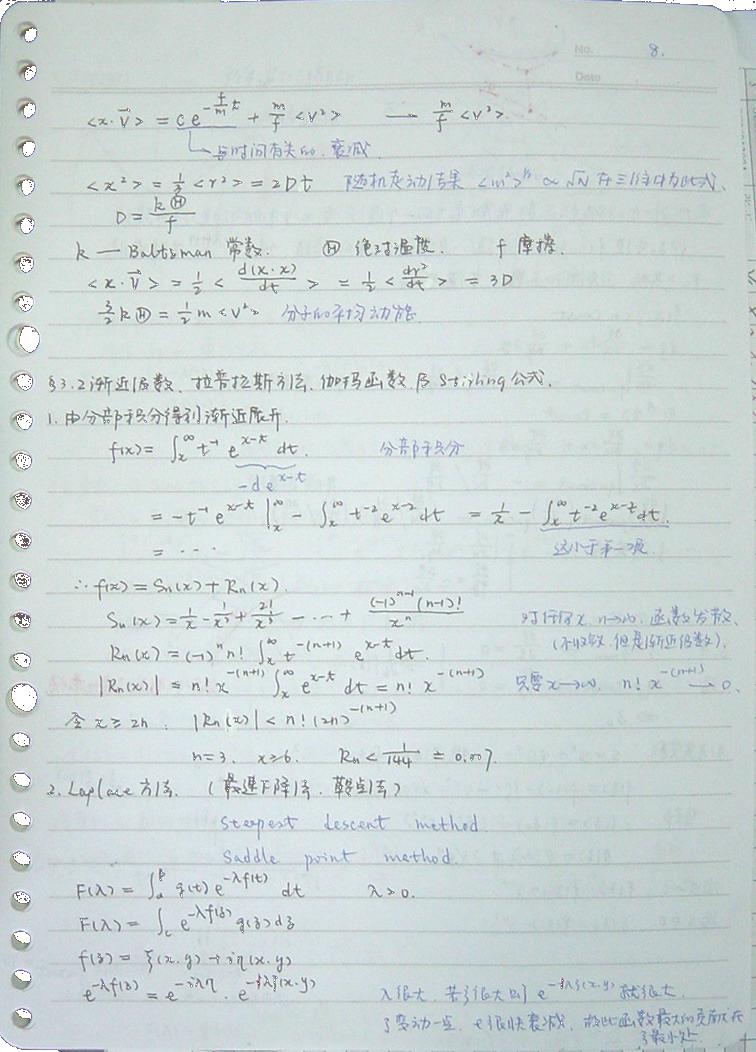 No. 8.
Date
<x·v⃗> = c e^{-\frac{f}{m}t} + \frac{m}{f} <v²> → \frac{m}{f} <v²>
与时间有关的,衰减
<x²> = \frac{1}{3} <r²> = 2Dt 随机走动结果 <m²>^{½} ∝ √N
D = \frac{kⒽ}{f}
k — Boltsman 常数. Ⓗ 绝对温度. f 摩擦.
<x·v⃗> = \frac{1}{2} < \frac{d(x·x)}{dt} > = \frac{1}{2} < \frac{dr²}{dt} > = 3D
\frac{3}{2} kⒽ = \frac{1}{2} m <v²> 分子的平均动能
§3.2 渐近级数、拉普拉斯方法、伽玛函数及 Stirling 公式.
1. 由分部积分得到渐近展开.
f(x) = ∫_x^∞ t^{-1} e^{x-t} dt. 分部积分
-d e^{x-t}
= -t^{-1} e^{x-t} |_x^∞ - ∫_x^∞ t^{-2} e^{x-t} dt = \frac{1}{x} - ∫_x^∞ t^{-2} e^{x-t} dt.
= ··· 这小于第一项
∴ f(x) = Sn(x) + Rn(x).
Sn(x) = \frac{1}{x} - \frac{1}{x²} + \frac{2!}{x³} - ··· + \frac{(-1)^{n-1}(n-1)!}{x^n} 对任何x, n→∞, 函数发散、
(不收敛,但是渐近级数).
Rn(x) = (-1)^n n! ∫_x^∞ t^{-(n+1)} e^{x-t} dt.
|Rn(x)| ≤ n! x^{-(n+1)} ∫_x^∞ e^{x-t} dt = n! x^{-(n+1)} 只要 x→∞, n! x^{-(n+1)} → 0.
若 x ≥ 2n. |Rn(x)| < n! (2n)^{-(n+1)}
n=3. x≥6. Rn < \frac{1}{144} ≐ 0.007.
2. Laplace 方法. (最速下降法、鞍点法)
steepest descent method.
saddle point method.
F(λ) = ∫_α^β g(t) e^{-λf(t)} dt λ>0.
F(λ) = ∫_c e^{-λf(z)} g(z) dz
f(z) = ξ(x.y) + iη(x.y)
e^{-λf(z)} = e^{-iλη} · e^{-λξ(x.y)} λ很大, 若ξ很大则 e^{-λξ(x.y)} 就很大.
ξ变动一点, e很快衰减, 故此函数最大的贡献在
ξ最小处.